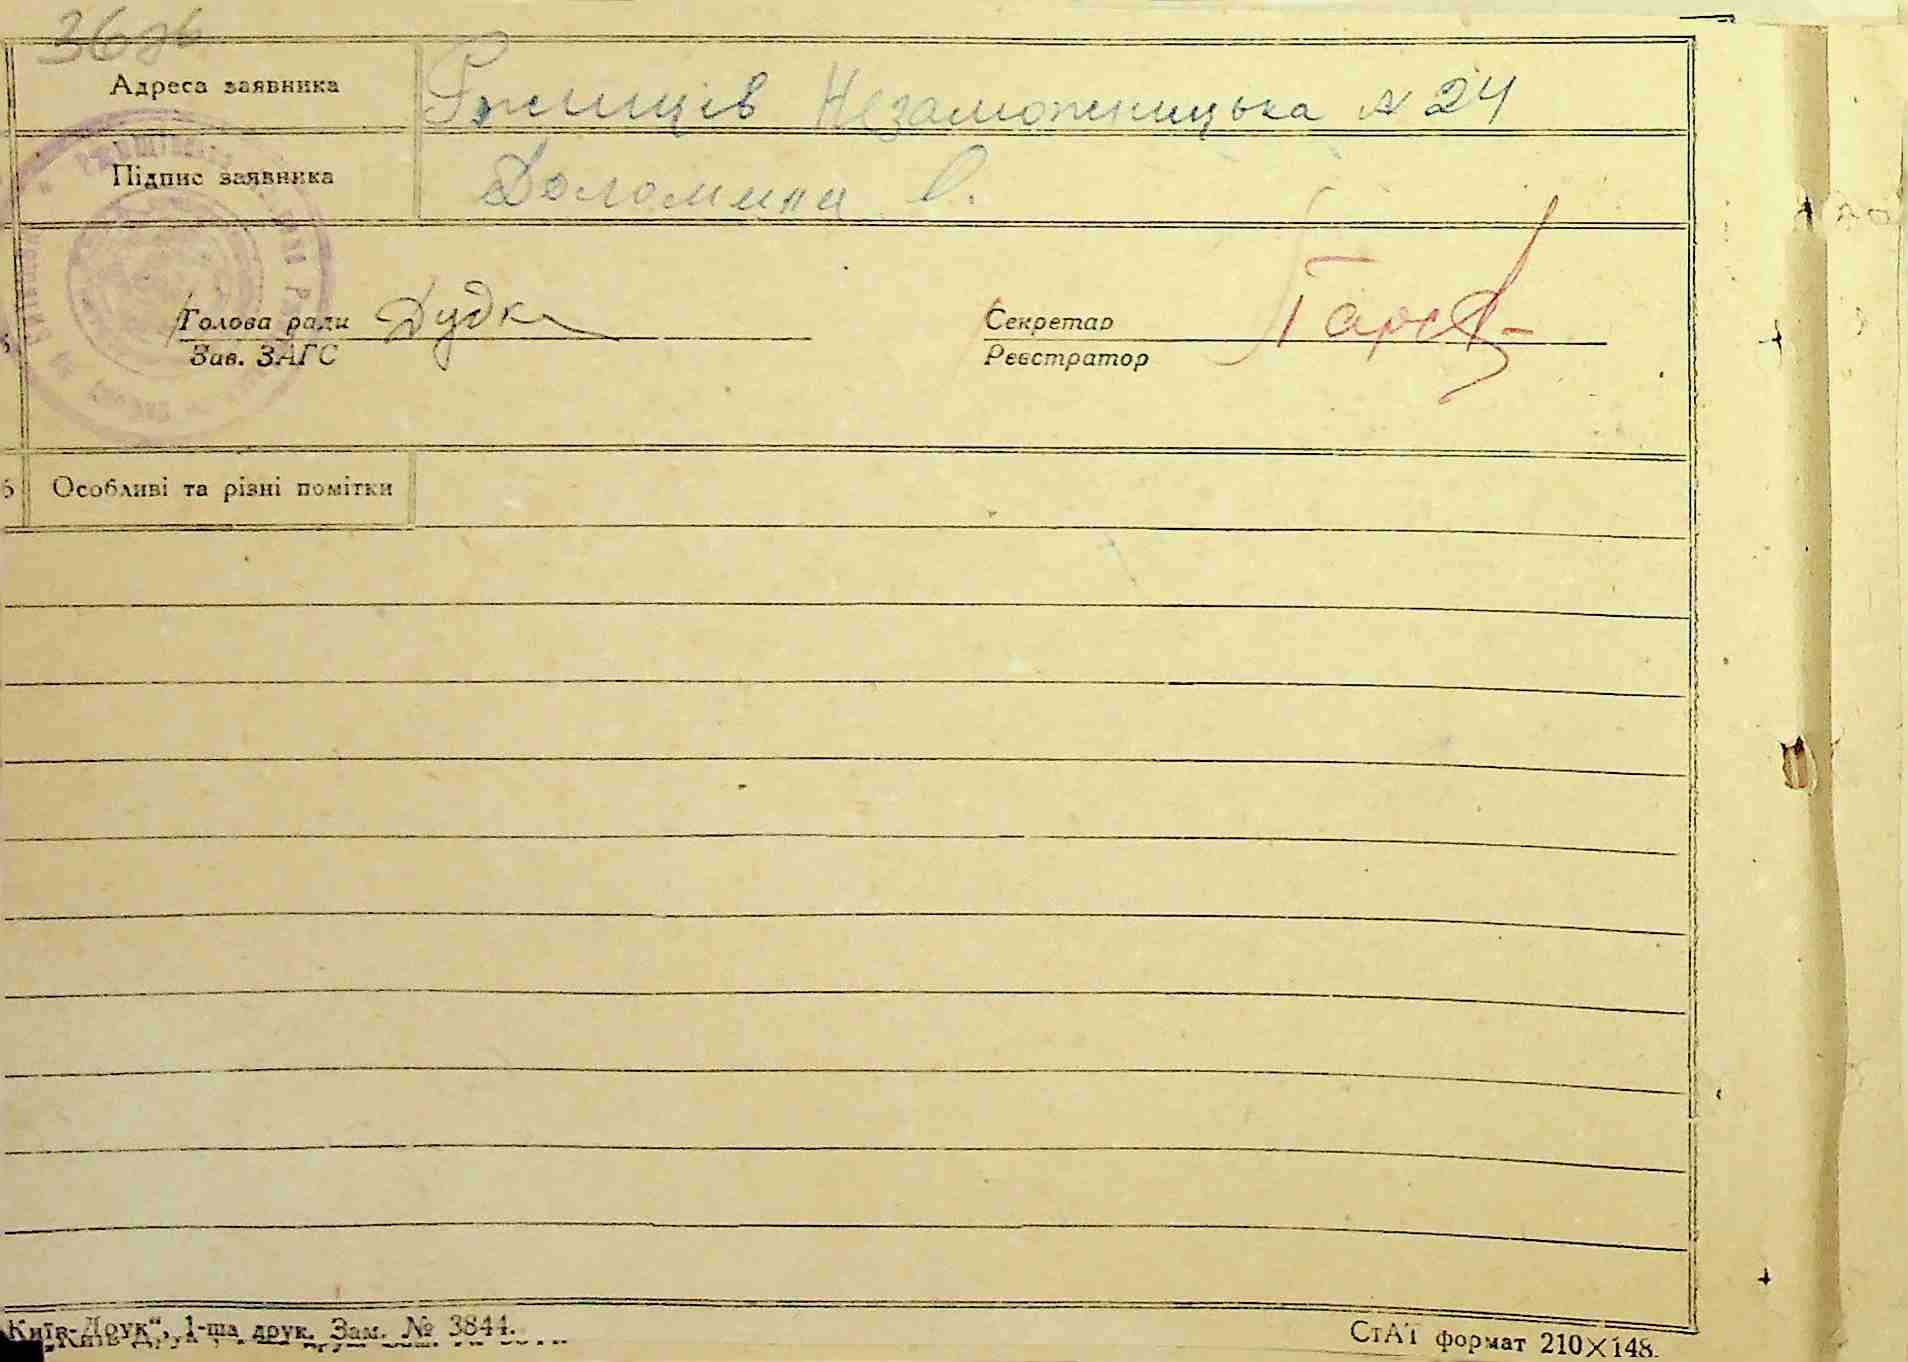 36зв
Адреса заявника Ржищів Незаможницька № 24
Підпис заявника Доломина О.
Голова ради Дудка Секретар
Зав. ЗАГС Реєстратор
6 Особливі та різні помітки
Київ-Друк“, 1-ша друк. Зам. № 3844. СтАТ формат 210×148.